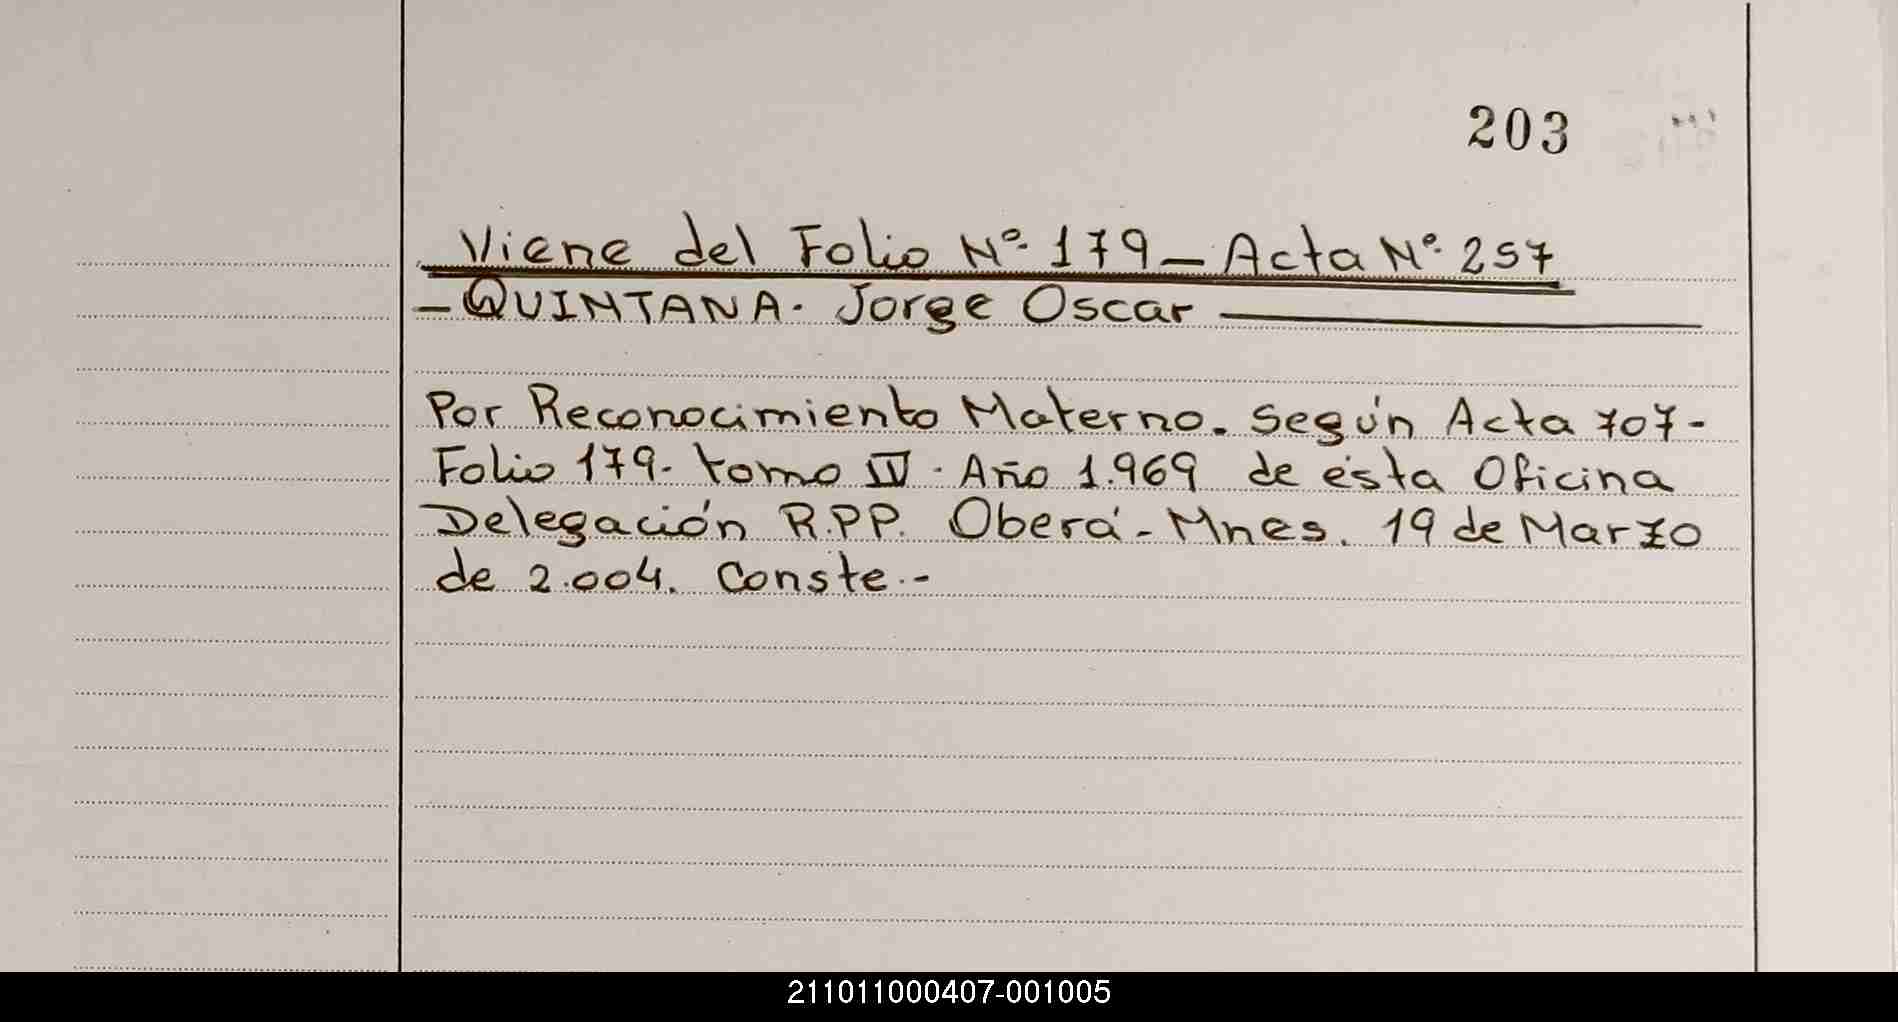 203
Viene del Folio Nº 179 - Acta Nº 257
- QUINTANA. Jorge Oscar
Por Reconocimiento Materno. Según Acta 707-
Folio 179. tomo IV. Año 1.969 de ésta Oficina
Delegación R.P.P. Oberá - Mnes. 19 de Marzo
de 2.004. Conste.-
211011000407-001005